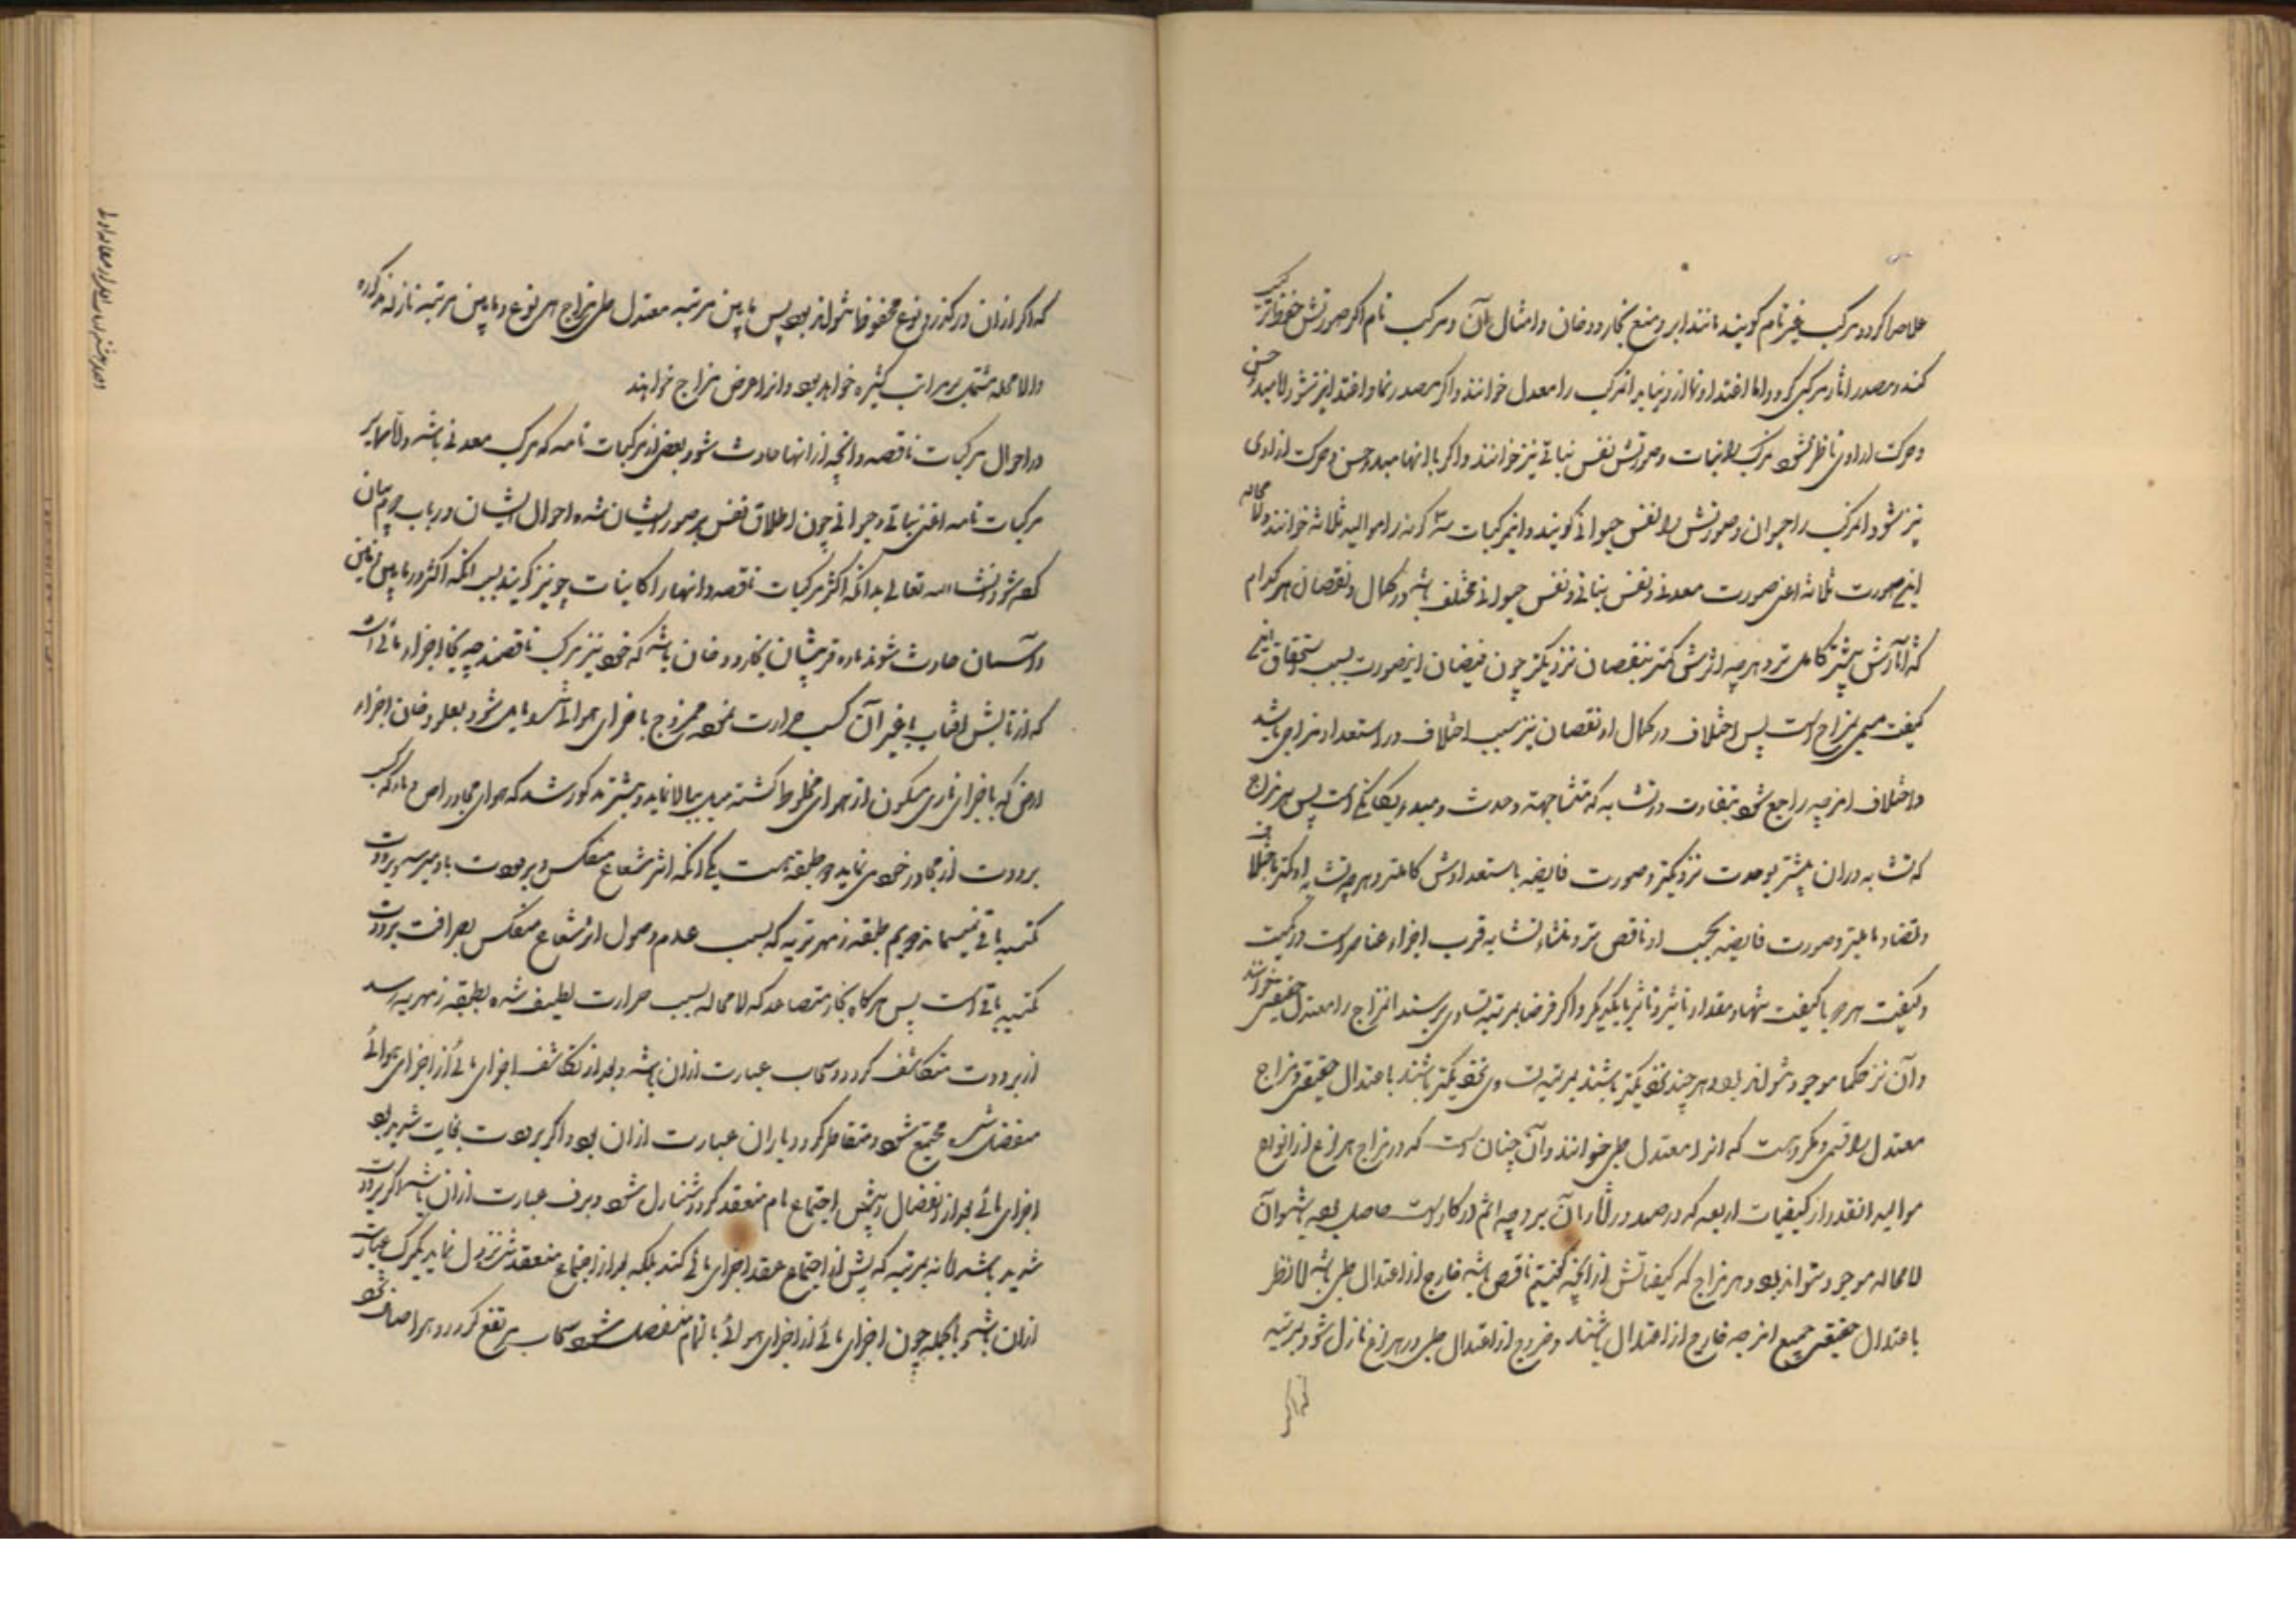 گردد مرکب غیر تام گویند مانند ابر و میغ و بخار و دخان و امثال آن و مرکب تام اگر صورتش حفظ ترکیب
کند و مصدر اثار دیگر نگردد و نما از او نیاید آنمرکب را معدنی خوانند و اگر مصدر نما و اغتذا نیز شود و لا مبدء حس
و حرکت ارادی نباشد آنمرکب را نبات و صورتش را نفس نباتی نیز خوانند و اگر با اینها مبدء حس و حرکت ارادی
نیز شود آنمرکب را حیوان و صورتش را نفس حیوانی گویند و این مرکبات سه گونه را موالید ثلاثه خوانند و لامحاله
این صورت ثلاثه اعنی صورت معدنی و نفس نباتی و نفس حیوانی مختلف باشند در کمال و نقصان هر کدام
که آثارش بیشتر کاملتر و هر چه اثرش کمتر بنقصان نزدیکتر چون فیضان این صورت بسبب استحقاق این
کیفیت مسمی بمزاج است پس اختلاف در کمال و نقصان نیز بسبب اختلاف در استعداد مزاجی باشد
و اختلاف امزجه راجع شود بتفاوت در تشابه که منشأ جهت وحدت و مبدء یگانگی است پس هر مزاج
که تشابه در آن بیشتر بوحدت نزدیکتر و صورت فایضه باستعدادش کاملتر و هر چه تشابه او کمتر باختلاف
و تضاد مایلتر و صورت فایضه بحسب او ناقص تر و منشاء تشابه قرب اجزاء عناصر است در کمیت
و کیفیت هر جزء با کیفیت تنها و مقدار تاثیر و تاثر با یکدیگر و اگر فرضا بمرتبه تساوی برسند آنمزاج را معتدل حقیقی خوانند
و آن نزد حکما موجود نتواند بود و هر چند نزدیکتر باشند بمرتبه تساوی نزدیکتر باشند باعتدال حقیقی و مزاج
معتدل را قسمی دیگر هست که آنرا معتدل طبی خوانند و آن چنان است که در مزاج هر نوع از انواع
موالید آنقدر از کیفیات اربعه که در صدور آثار آن بر وجه اتم در کار است حاصل بوده باشد و آن
لامحاله موجود تواند بود و هر مزاج که کیفیاتش از آنچه گفتیم ناقص باشد خارج از اعتدال طبی باشد اما نظر
باعتدال حقیقی جمیع امزجه خارج از اعتدال باشند و خروج از اعتدال طبی در هر نوع نازل شود بمرتبه
که اگر
که اگر از آن درگذرد نوع محفوظ نتواند بود پس مابین مرتبه معتدل طبی مزاج هر نوع و مابین مرتبه نازله مذکوره
لا محاله مشتمل بر مراتب کثیره خواهد بود و آنرا عرض مزاج خوانند
در احوال مرکبات ناقصه و آنچه از آنها حادث شود و بعضی از مرکبات تامه که مرکب معدنی باشد و اما سایر
مرکبات تامه اعنی نباتی و حیوانی چون اطلاق نفس بر صور ایشان شده احوال ایشان در باب سیم بیان
کرده شود انشاء الله تعالی بدانکه اکثر مرکبات ناقصه و آنها را کاینات جو نیز گویند بسبب آنکه اکثر در مابین زمین
و آسمان حادث شوند ماده قریبشان بخار و دخان باشد که خود نیز مرکب ناقصند چه بخار اجزاء مائی است
که از تابش آفتاب یا غیر آن کسب حرارت نموده ممزوج با اجزای هوائی شده مایل شود بعلو و دخان اجزاء
ارضی که با اجزای ناری متکون از هوای مخلوط گشته میل ببالا نماید و بیشتر مذکور شد که هوای مجاور ارض و ماء که کسب
برودت از مجاور خود می نماید دو طبقه است یکی آنکه اثر شعاع منعکس و برودت باو میرسد و برودت
مکتسبه باقی نمیماند دویم طبقه زمهریریه که بسبب عدم وصول اثر شعاع منعکس بصرافت برودت
مکتسبه باقی است پس هرگاه بخار متصاعد که لا محاله بسبب حرارت لطیف شده بطبقه زمهریریه رسد
از برودت متکاثف گردد و سحاب عبارت از آن باشد و بعد از تکاثف اجزای مائی از اجزای هوائی
منفصل شده مجتمع شود و متقاطر گردد و باران عبارت از آن بود و اگر برودت بغایت شدید بود
اجزای مائی بعد از انفصال و پیش اجتماع تام منعقد گردد و متنازل شود و برف عبارت از آن باشد و اگر برودت
شدید باشد اما نه بمرتبه که پیش از اجتماع عقد اجزای مائی کند بلکه بعد از اجتماع منعقد شده نزول نماید تگرگ عبارت
از آن باشد و بالجمله چون اجزای مائی از اجزای هوائی بالتمام منفصل شود سحاب مرتفع گردد و هوا صاف شود